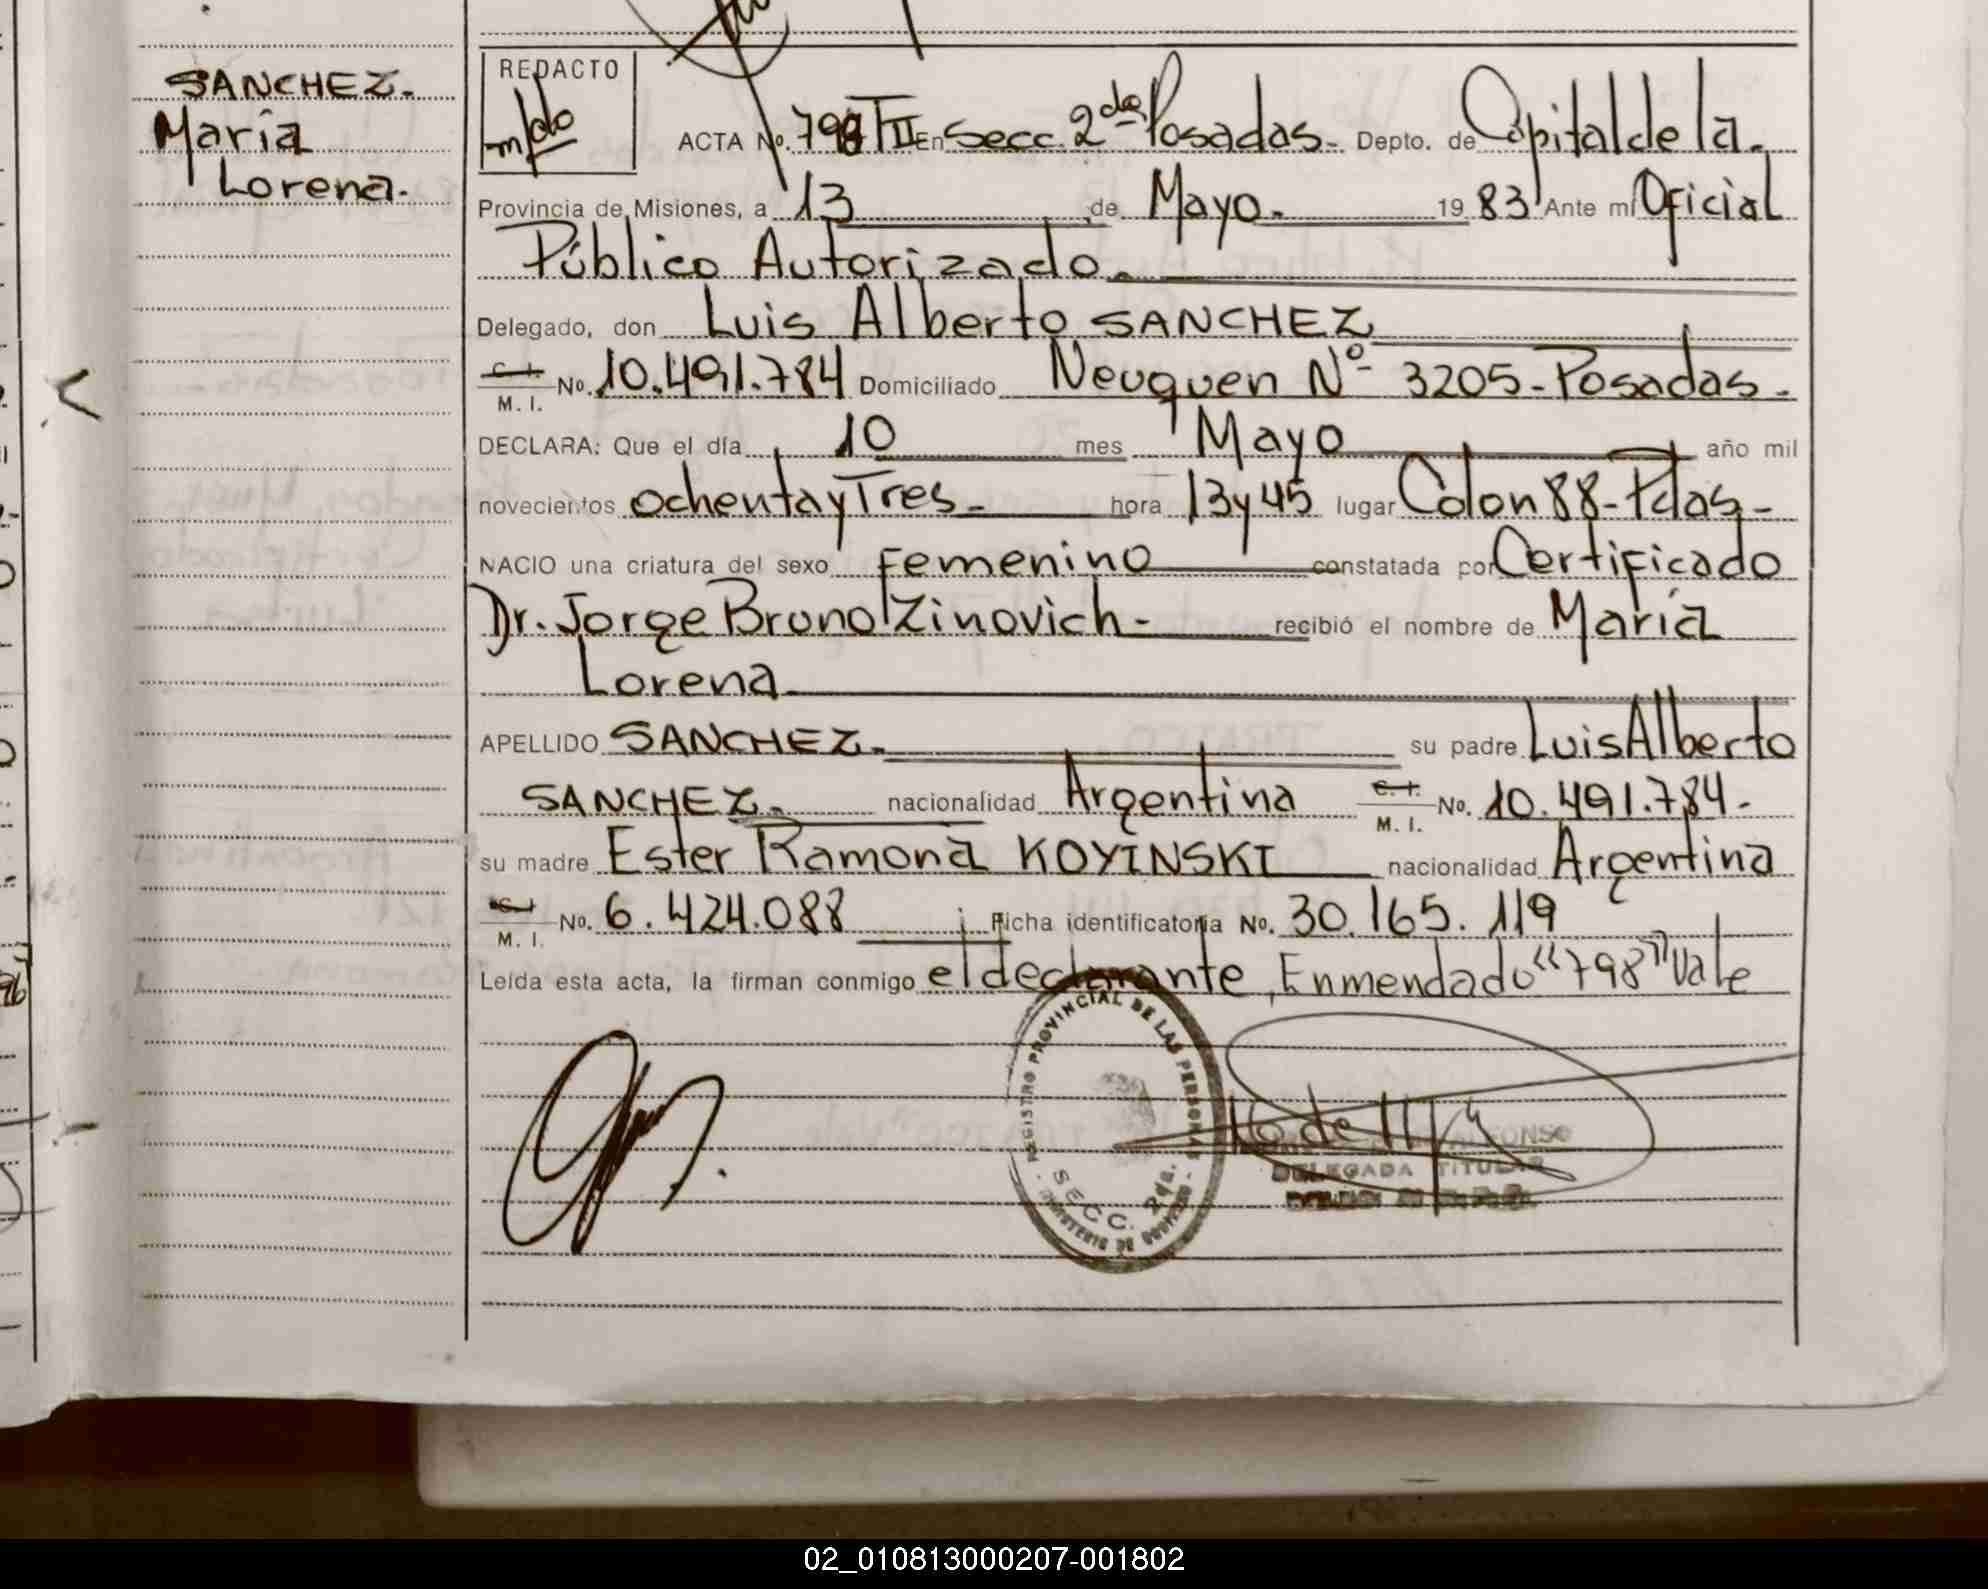 SANCHEZ.
María
Lorena.
REDACTO
m/do
ACTA No. 798 TII En Secc. 2da Posadas. Depto. de Capital de la.
Provincia de Misiones, a 13 de Mayo. 19 83 Ante mí Oficial
Público Autorizado.
Delegado, don Luis Alberto SANCHEZ
C. I.
M. I. No. 10.491.784 Domiciliado Neuquen Nº 3205-Posadas.
DECLARA: Que el día 10 mes Mayo año mil
novecientos ochenta y Tres. hora 13 y 45 lugar Colon 88-Pdas-
NACIO una criatura del sexo Femenino constatada por Certificado
Dr. Jorge Bruno Zinovich- recibió el nombre de María
Lorena
APELLIDO SANCHEZ. su padre Luis Alberto
SANCHEZ. nacionalidad Argentina C. I.
M. I. No. 10.491.784.
su madre Ester Ramona KOYINSKI nacionalidad Argentina
C. I.
M. I. No. 6.424.088 Ficha identificatoria No. 30.165.119
Leída esta acta, la firman conmigo el declarante, Enmendado "798" Vale
REGISTRO PROVINCIAL DE LAS PERSONAS
SECC. 2da.
MINISTERIO DE GOBIERNO
ALFONSO
DELEGADA TITULAR
02_010813000207-001802